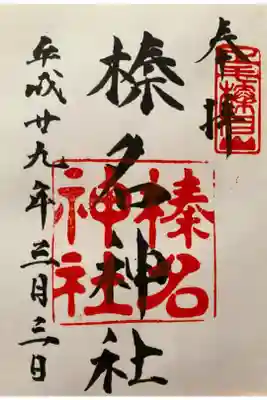 奉拝
榛名神社
榛名
神社
平成廿九年三月三日